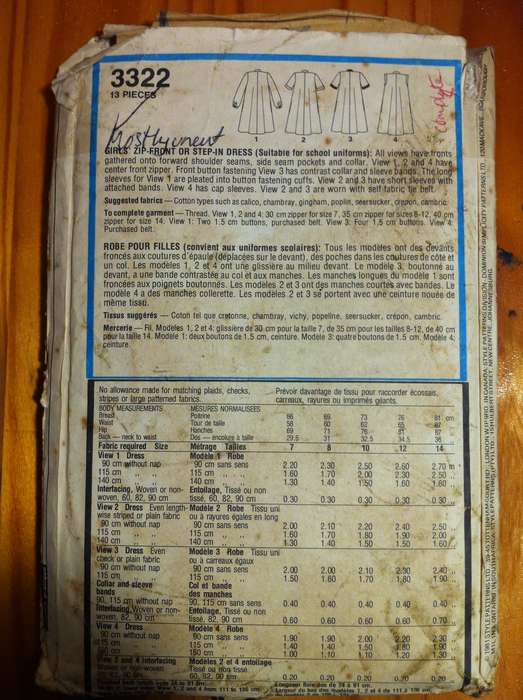 3322
13 PIECES
1 2 3 4
complete
GIRLS' ZIP-FRONT OR STEP-IN DRESS (Suitable for school uniforms): All views have fronts
gathered onto forward shoulder seams, side seam pockets and collar. View 1, 2 and 4 have
center front zipper. Front button fastening View 3 has contrast collar and sleeve bands. The long
sleeves for View 1 are pleated into button fastening cuffs. View 2 and 3 have short sleeves with
attached bands. View 4 has cap sleeves. View 2 and 3 are worn with self fabric tie belt.
Suggested fabrics – Cotton types such as calico, chambray, gingham, poplin, seersucker, crepon, cambric.
To complete garment – Thread. View 1, 2 and 4: 30 cm zipper for size 7, 35 cm zipper for sizes 8-12, 40 cm
zipper for size 14. View 1: Two 1.5 cm buttons, purchased belt. View 3: Four 1.5 cm buttons. View 4:
Purchased belt.
ROBE POUR FILLES (convient aux uniformes scolaires): Tous les modèles ont des devants
froncés aux coutures d'épaule (déplacées sur le devant), des poches dans les coutures de côté et
un col. Les modèles 1, 2 et 4 ont une glissière au milieu devant. Le modèle 3, boutonné au
devant, a une bande contrastée au col et aux manches. Les manches longues du modèle 1 sont
froncées aux poignets boutonnés. Les modèles 2 et 3 ont des manches courtes avec bandes. Le
modèle 4 a des manches collerette. Les modèles 2 et 3 se portent avec une ceinture nouée de
même tissu.
Tissus suggérés – Coton tel que cretonne, chambray, vichy, popeline, seersucker, crépon, cambric.
Mercerie – Fil. Modèles 1, 2 et 4: glissière de 30 cm pour la taille 7, de 35 cm pour les tailles 8-12, de 40 cm
pour la taille 14. Modèle 1: deux boutons de 1.5 cm, ceinture. Modèle 3: quatre boutons de 1.5 cm. Modèle 4:
ceinture.
No allowance made for matching plaids, checks, Prévoir davantage de tissu pour raccorder écossais,
stripes or large patterned fabrics. carreaux, rayures ou imprimés géants.
BODY MEASUREMENTS MESURES NORMALISÉES
Breast Poitrine 66 69 73 76 81 cm
Waist Tour de taille 58 60 62 65 67
Hip Hanches 69 71 76 81 87
Back — neck to waist Dos — encolure à taille 29.5 31 32.5 34.5 36
Fabric required Size Métrage Tailles 7 8 10 12 14
View 1 Dress Modèle 1 Robe
90 cm without nap 90 cm sans sens 2.20 2.30 2.50 2.60 2.70 m
115 cm 115 cm 1.60 1.70 2.00 2.30 2.50
140 cm 140 cm 1.30 1.40 1.50 1.60 1.60
Interfacing, Woven or non- Entoilage, Tissé ou non
woven, 60, 82, 90 cm tissé, 60, 82, 90 cm 0.30 0.30 0.30 0.30 0.30
View 2 Dress Even length- Modèle 2 Robe Tissu uni
wise striped or plain fabric ou à rayures égales en long
90 cm without nap 90 cm sans sens 2.00 2.10 2.20 2.40 2.50
115 cm 115 cm 1.60 1.70 1.80 1.90 2.00
140 cm 140 cm 1.30 1.40 1.50 1.50 1.60
View 3 Dress Even Modèle 3 Robe Tissu uni
check or plain fabric ou à carreaux égaux
90 cm without nap 90 cm sans sens 2.00 2.00 2.10 2.30 2.40
115 cm 115 cm 1.50 1.60 1.70 1.80 1.90
Collar and sleeve Col et bande
bands des manches
90, 115 cm without nap 90, 115 cm sans sens 0.40 0.40 0.40 0.40 0.40
Interfacing, Woven or non- Entoilage, Tissé ou non
woven, 82, 90 cm tissé, 82, 90 cm 0.60 0.60 0.60 0.60 0.70
View 4 Dress Modèle 4 Robe
90 cm without nap 90 cm sans sens 1.90 1.90 2.00 2.20 2.30
115 cm 115 cm 1.40 1.40 1.50 1.80 1.90
cm cm 1.00 1.10 1.10 1.20 1.30
View 2 and 4 interfacing Modèles 2 et 4 entoilage